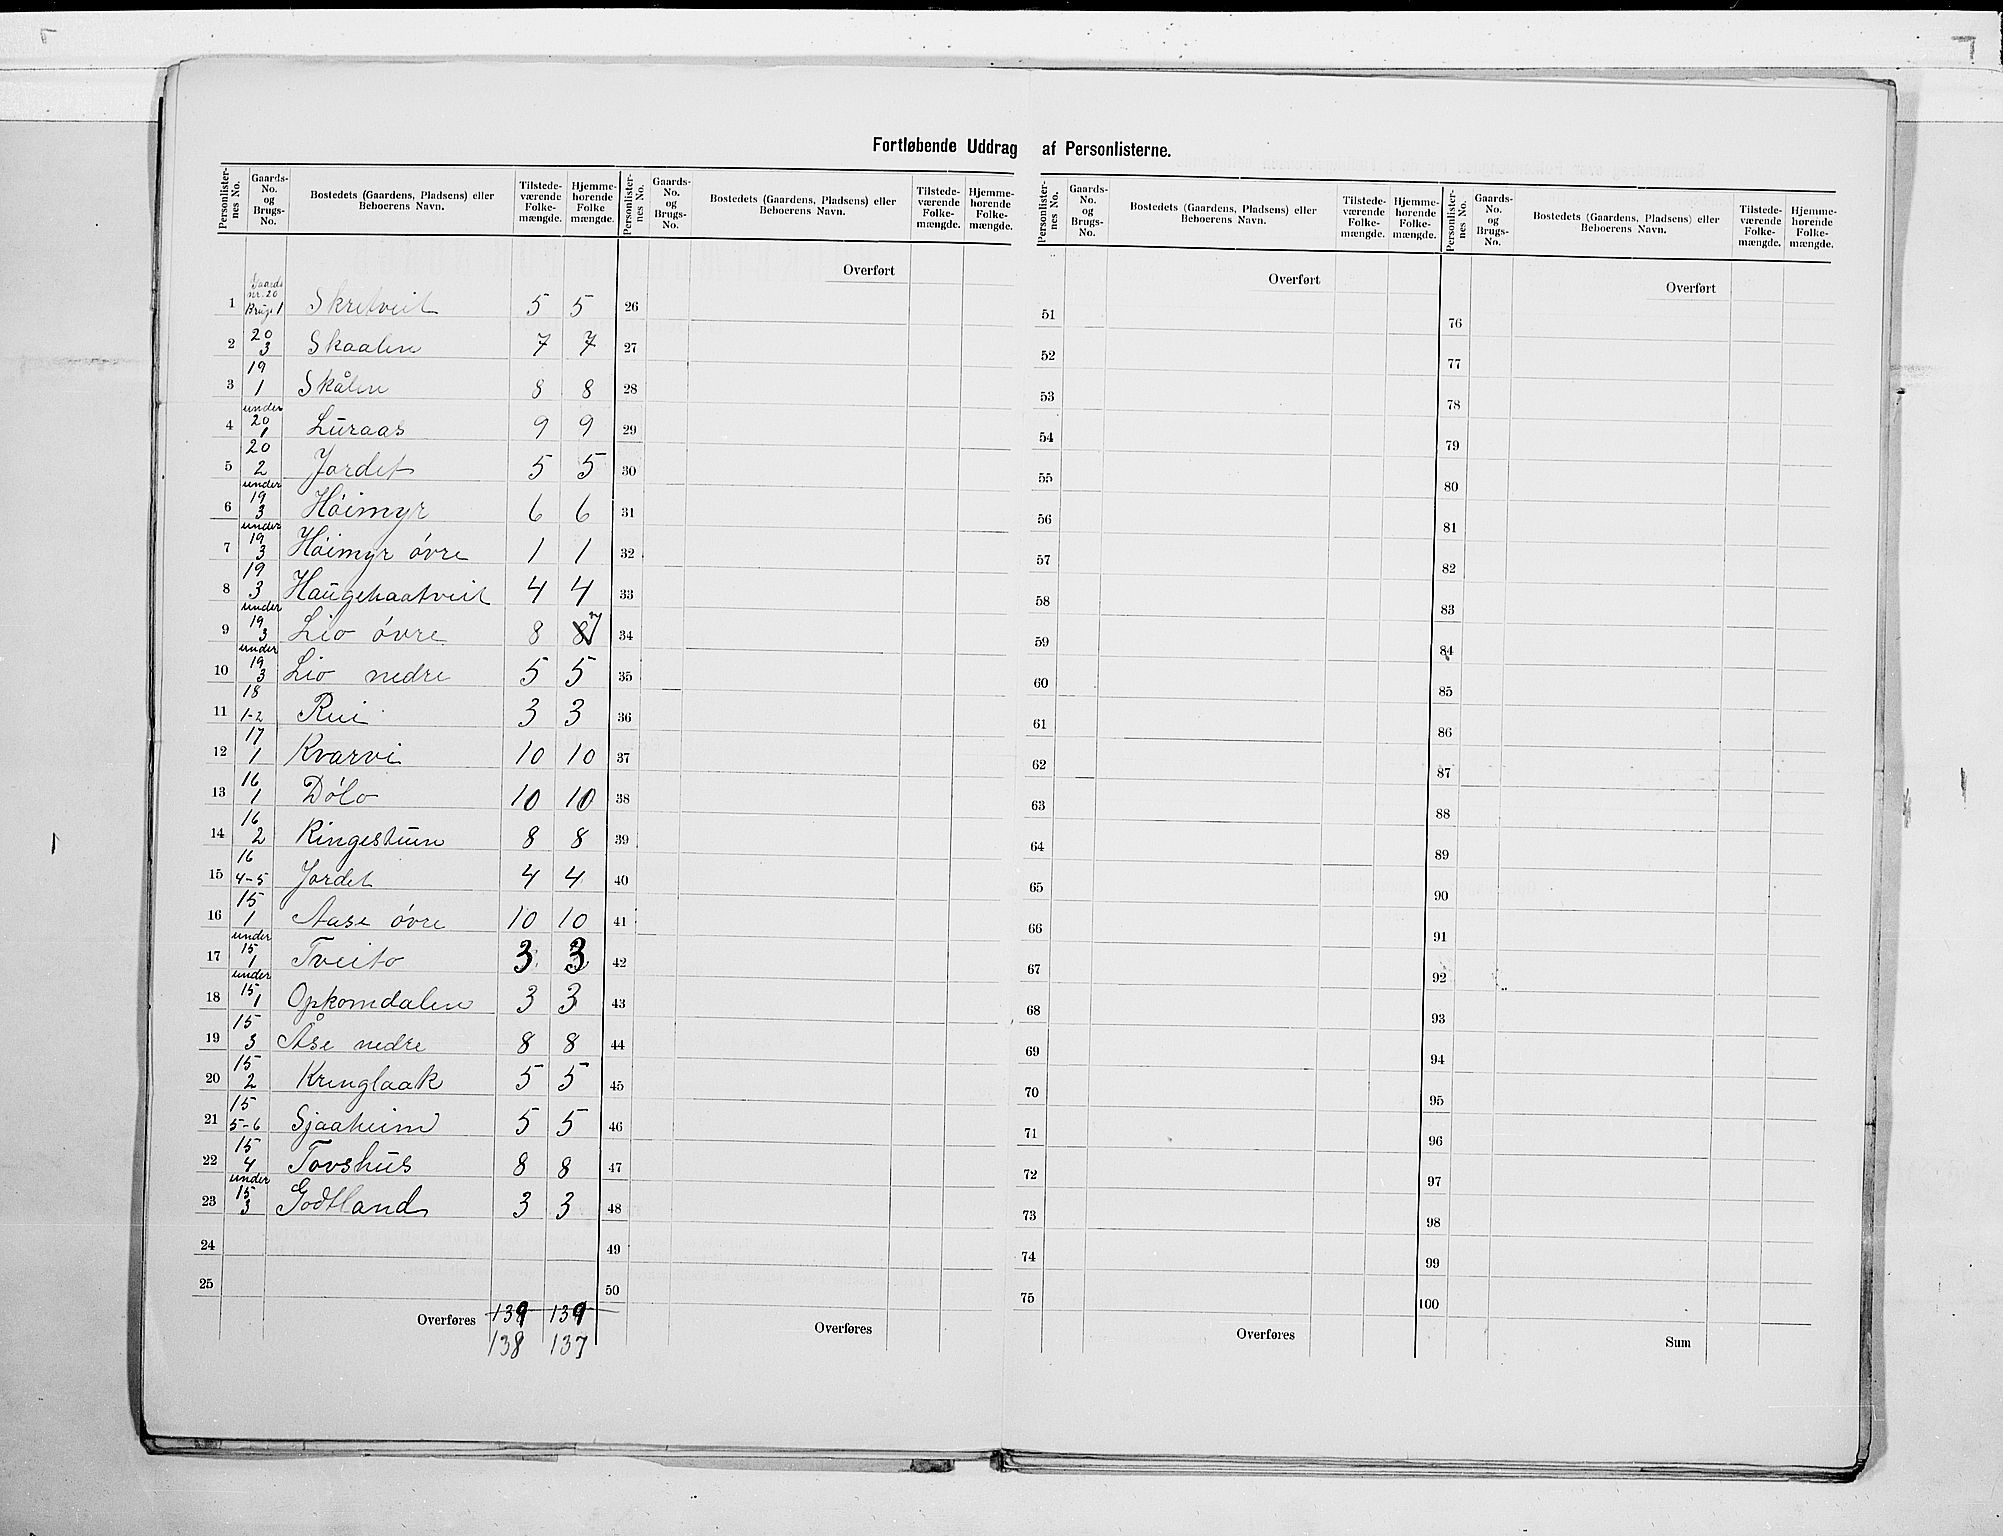 Fortløbende Uddrag af Personlisterne.
Personlister-nes No. Gaards-No. og Brugs-No. Bostedets (Gaardens, Pladsens) eller Beboerens Navn. Tilstede-værende Folke-mængde. Hjemme-hørende Folke mængde.
Personlister-nes No. Gaards-No. og Brugs-No. Bostedets (Gaardens, Pladsens) eller Beboerens Navn. Tilstede-værende Folke-mængde. Hjemme-hørende Folke-mængde.
Personlister-nes No. Gaards-No. og Brugs-No. Bostedets (Gaardens, Pladsens) eller Beboerens Navn. Tilstede-værende Folke-mængde. Hjemme-hørende Folke-mængde.
Personlister-nes No. Gaards-No. og Brugs-No. Bostedets (Gaardens, Pladsens) eller Beboerens Navn. Tilstede-værende Folke-mængde. Hjemme-hørende Folke-mængde.
Overført Overført Overført
1 Gaards nr. 20 Brugs 1 Skretveit 5 5 26 51 76
2 20 3 Skaalen 7 7 27 52 77
3 19 1 Skålen 8 8 28 53 78
4 under 20 1 Luraas 9 9 29 54 79
5 20 2 Jordet 5 5 30 55 80
6 under 19 3 Höimyr 6 6 31 56 81
7 under 19 3 Höimyr óvre 1 1 32 57 82
8 19 3 Haugehaatveit 4 4 33 58 83
9 under 19 3 Lio óvre 8 8 7 34 59 84
10 under 19 3 Lio nedre 5 5 35 60 85
11 18 1-2 Rui 3 3 36 61 86
12 17 1 Kvarvi 10 10 37 62 87
13 16 1 Dólo 10 10 38 63 88
14 16 2 Ringestuen 8 8 39 64 89
15 16 4-5 Jordet 4 4 40 65 90
16 15 1 Aase óvre 10 10 41 66 91
17 under 15 1 Tveito 3 3 42 67 92
18 under 15 1 Opkomdalen 3 3 43 68 93
19 15 3 Åse nedre 8 8 44 69 94
20 15 2 Kringlaak 5 5 45 70 95
21 15 5-6 Sjaaheim 5 5 46 71 96
22 15 4 Tovshus 8 8 47 72 97
23 under 15 3 Godtland 3 3 48 73 98
24 49 74 99
25 50 75 100
Overføres 139 139 Overføres Overføres Sum
138 137